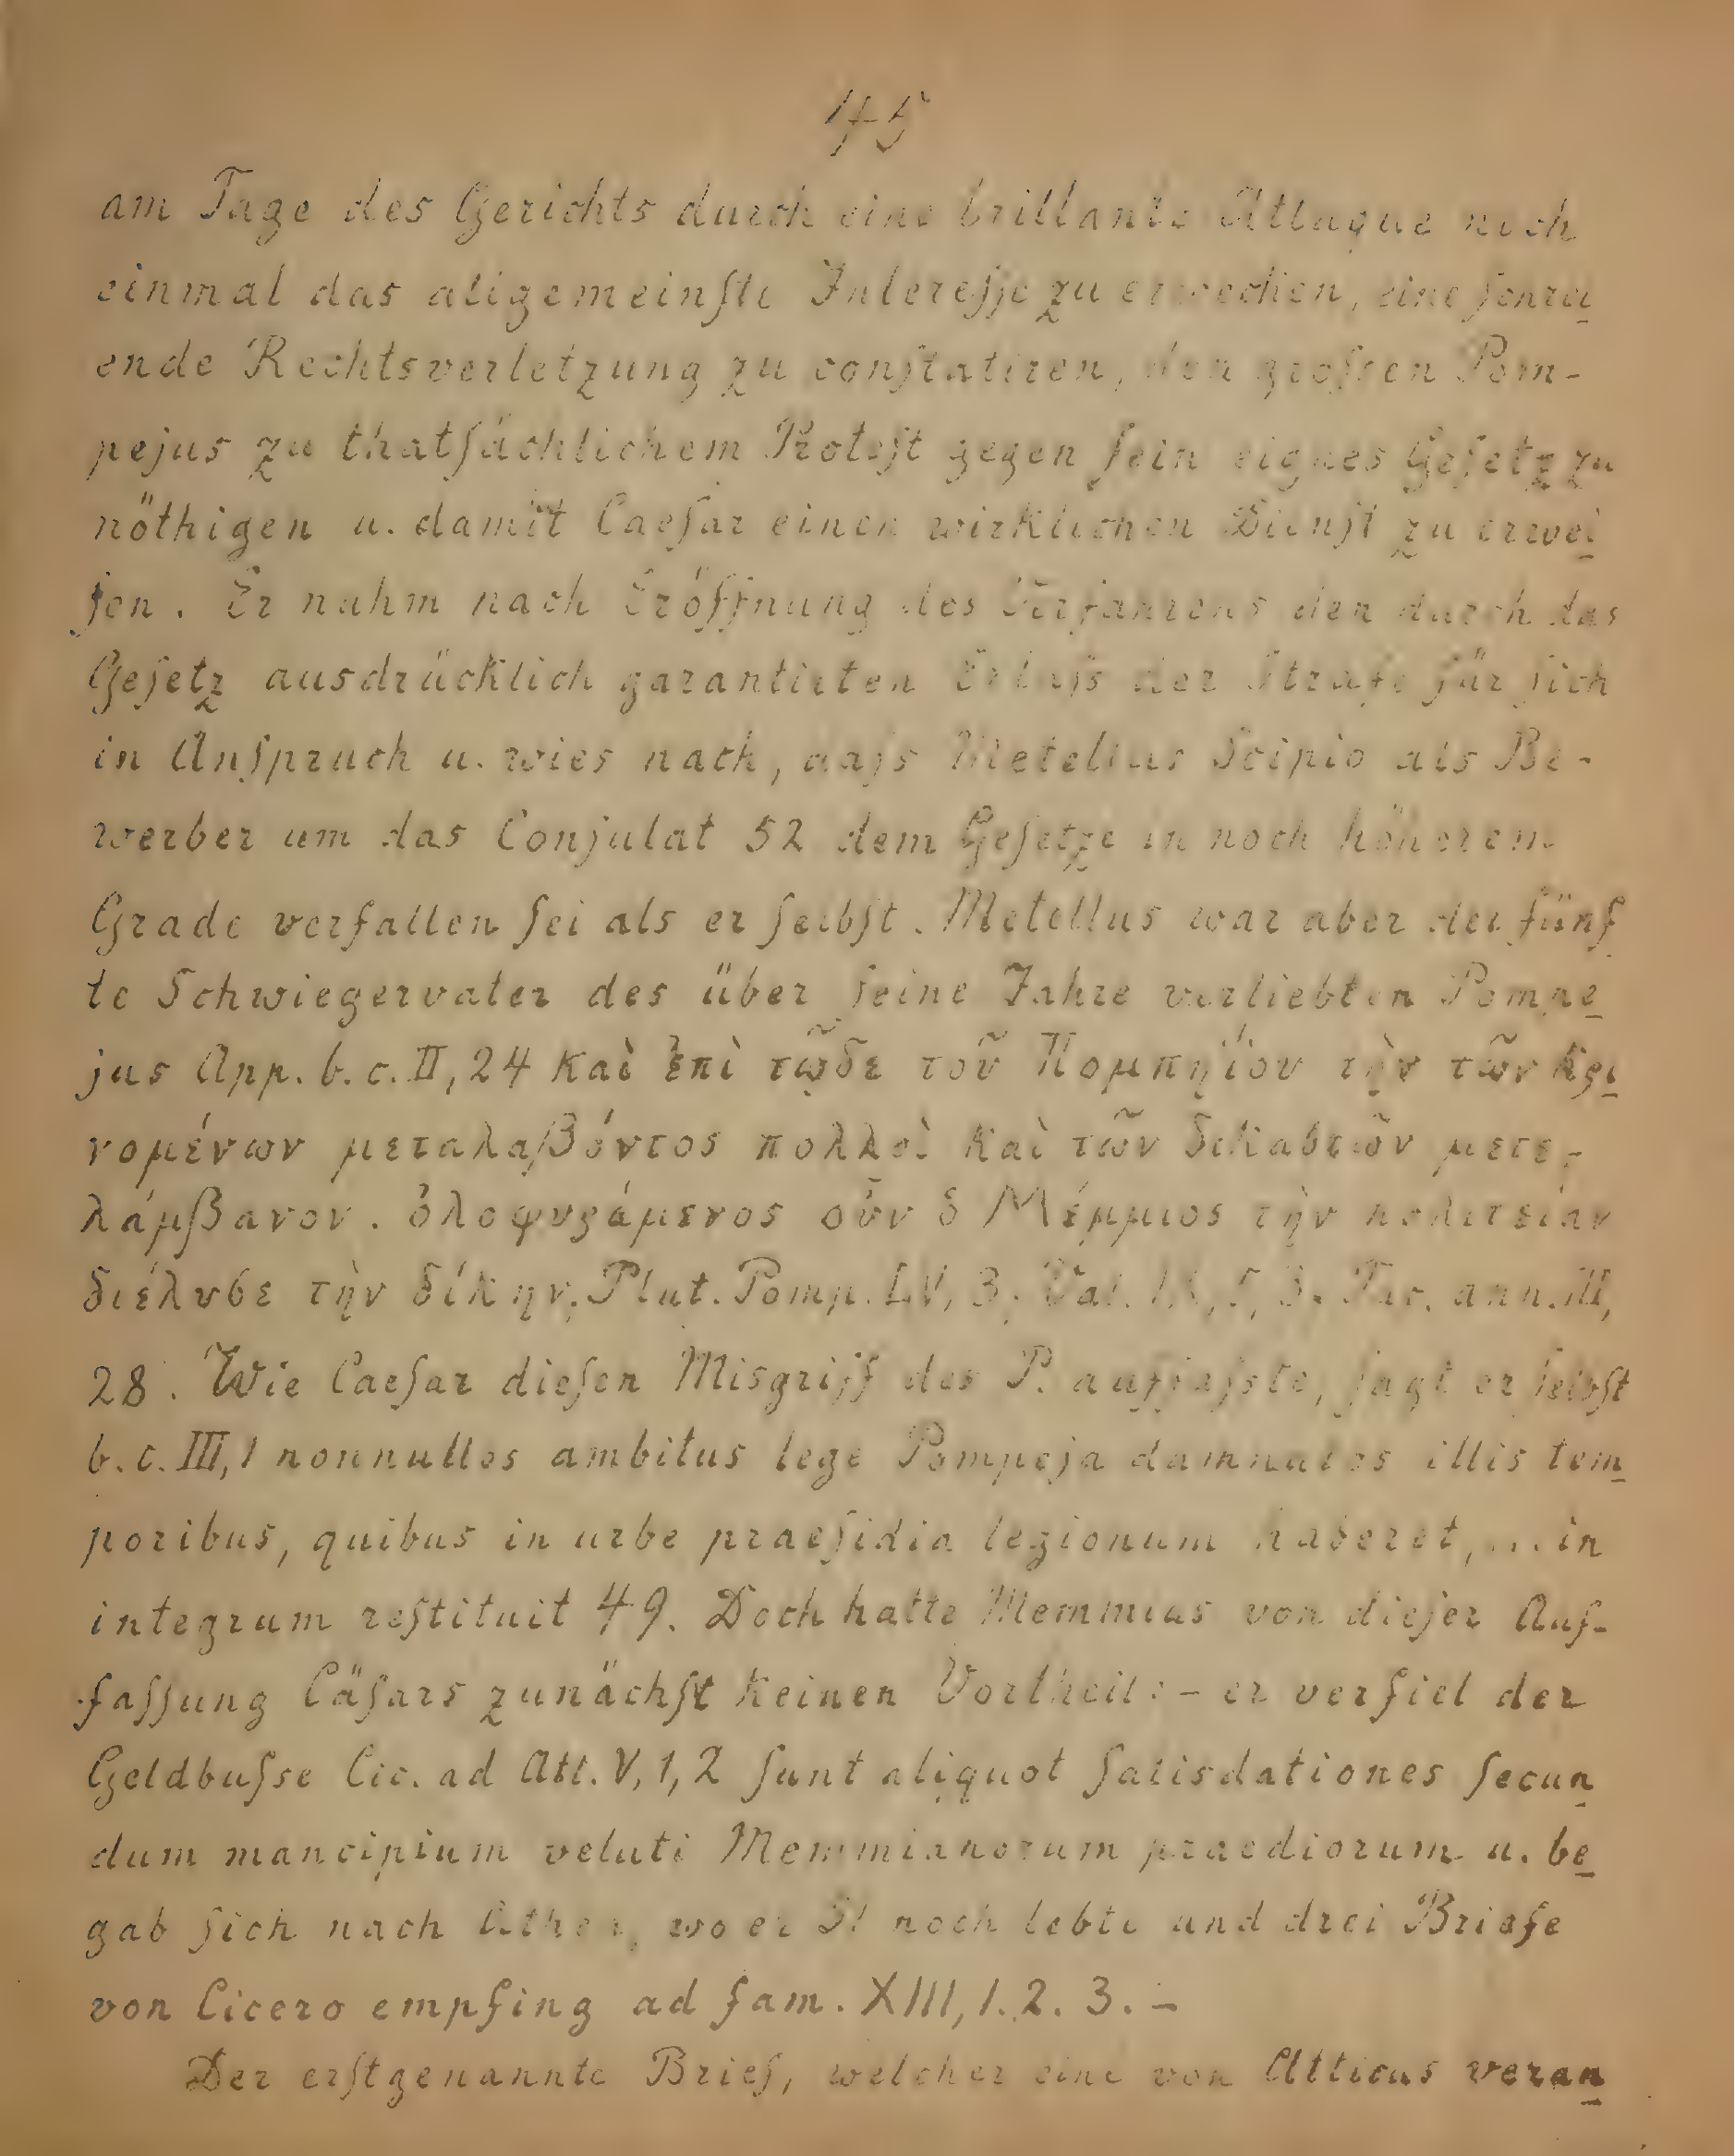 145
am Tage des Gerichts durch eine brillante Attaque noch
einmal das allgemeinſte Intereſſe zu erwecken, eine ſchrei
ende Rechtsverletzung zu conſtatiren, den groſsen Pom-
pejus zu thatſächlichem Proteſt gegen ſein eignes Geſetz zu
nöthigen u. damit Caeſar einen wirklichen Dienſt zu erwei
ſen. Er nahm nach Eröffnung des Verfahrens den durch das
Geſetz ausdrücklich garantirten Erlaſs der Strafe für ſich
in Anſpruch u. wies nach, daſs Metellus Scipio als Be-
werber um das Conſulat 52 dem Geſetze in noch höherem
Grade verfallen ſei als er ſelbſt. Metellus war aber der fünf
te Schwiegervater des über ſeine Jahre verliebten Pompe
jus App. b. c. II, 24 καὶ ἐπὶ τῷδε τοῦ Πομπηΐου τὴν τῶν κρι
νομένων μεταλαβόντος πολλοὶ καὶ τῶν δικαστῶν μετε-
λάμβανον. ὀλοφυράμενος οὖν ὁ Μέμμιος τὴν πολιτείαν
διέλυσε τὴν δίκην. Plut. Pomp. LV, 3. Val. IX, 5, 3. Tac. ann. III,
28. Wie Caeſar dieſen Misgriff des P. auffaſste, ſagt er ſelbſt
b. c. III, 1 nonnullos ambitus lege Pompeja damnatos illis tem
poribus, quibus in urbe praeſidia legionum haberet, ... in
integrum reſtituit 49. Doch hatte Memmius von dieſer Auf-
faſſung Cäſars zunächſt keinen Vortheil: – er verfiel der
Geldbuſse Cic. ad Att. V, 1, 2 ſunt aliquot ſatisdationes ſecun
dum mancipium veluti Memmianorum praediorum u. be
gab ſich nach Athen, wo er 51 noch lebte und drei Briefe
von Cicero empfing ad fam. XIII, 1. 2. 3. –
Der erſtgenannte Brief, welcher eine von Atticus veran